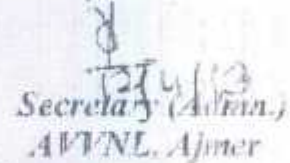 Secretary (Admn.)
AVVNL, Ajmer